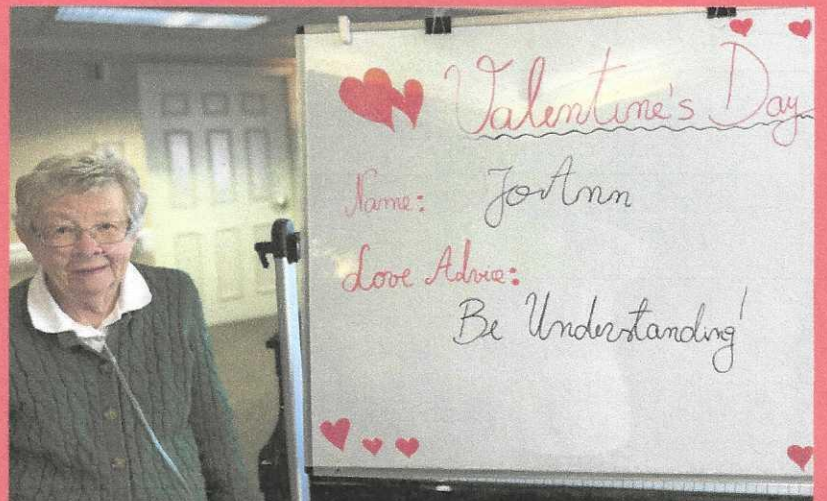 Valentine's Day
Name: JoAnn
Love Advice:
Be Understanding!